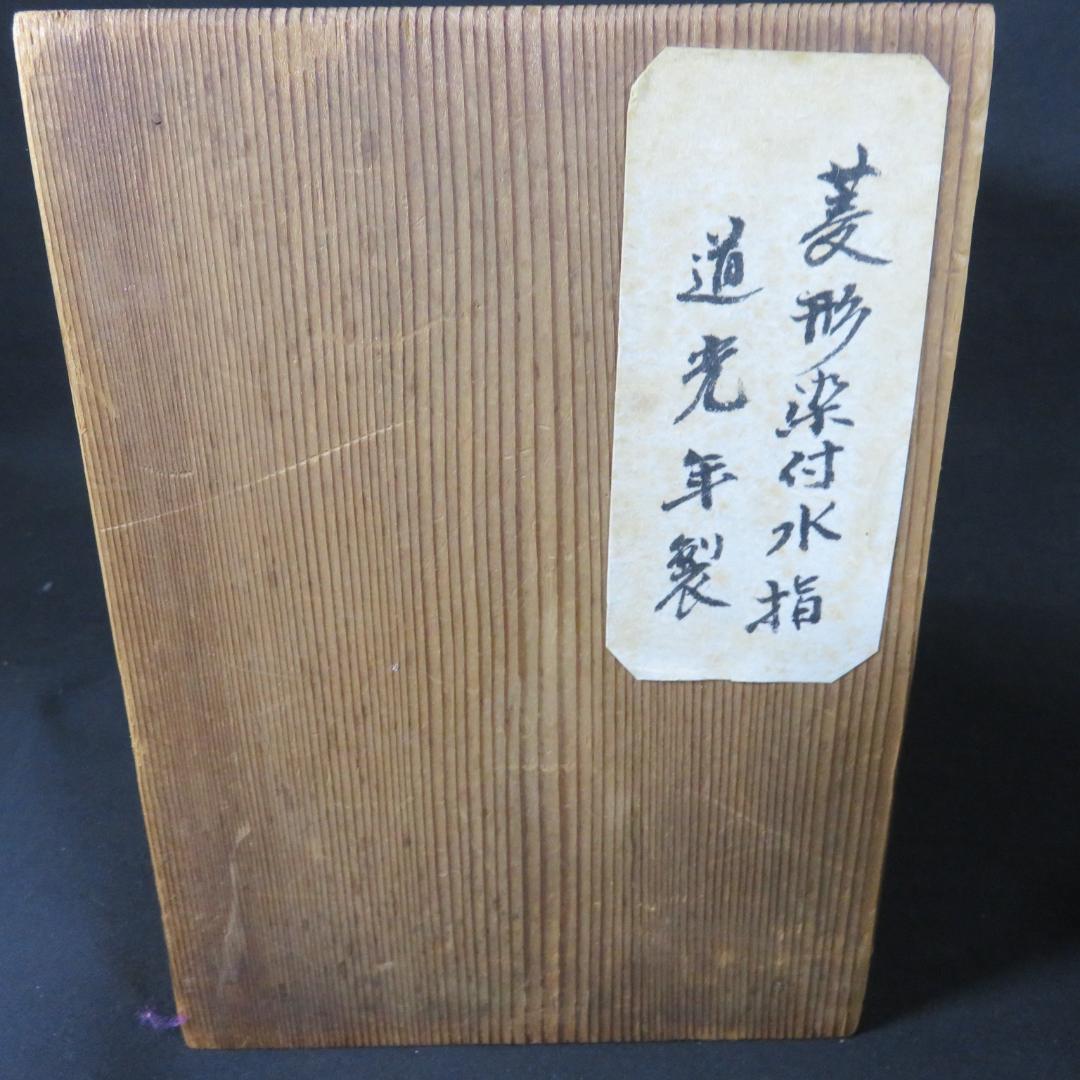 菱形染付水指
道光年製